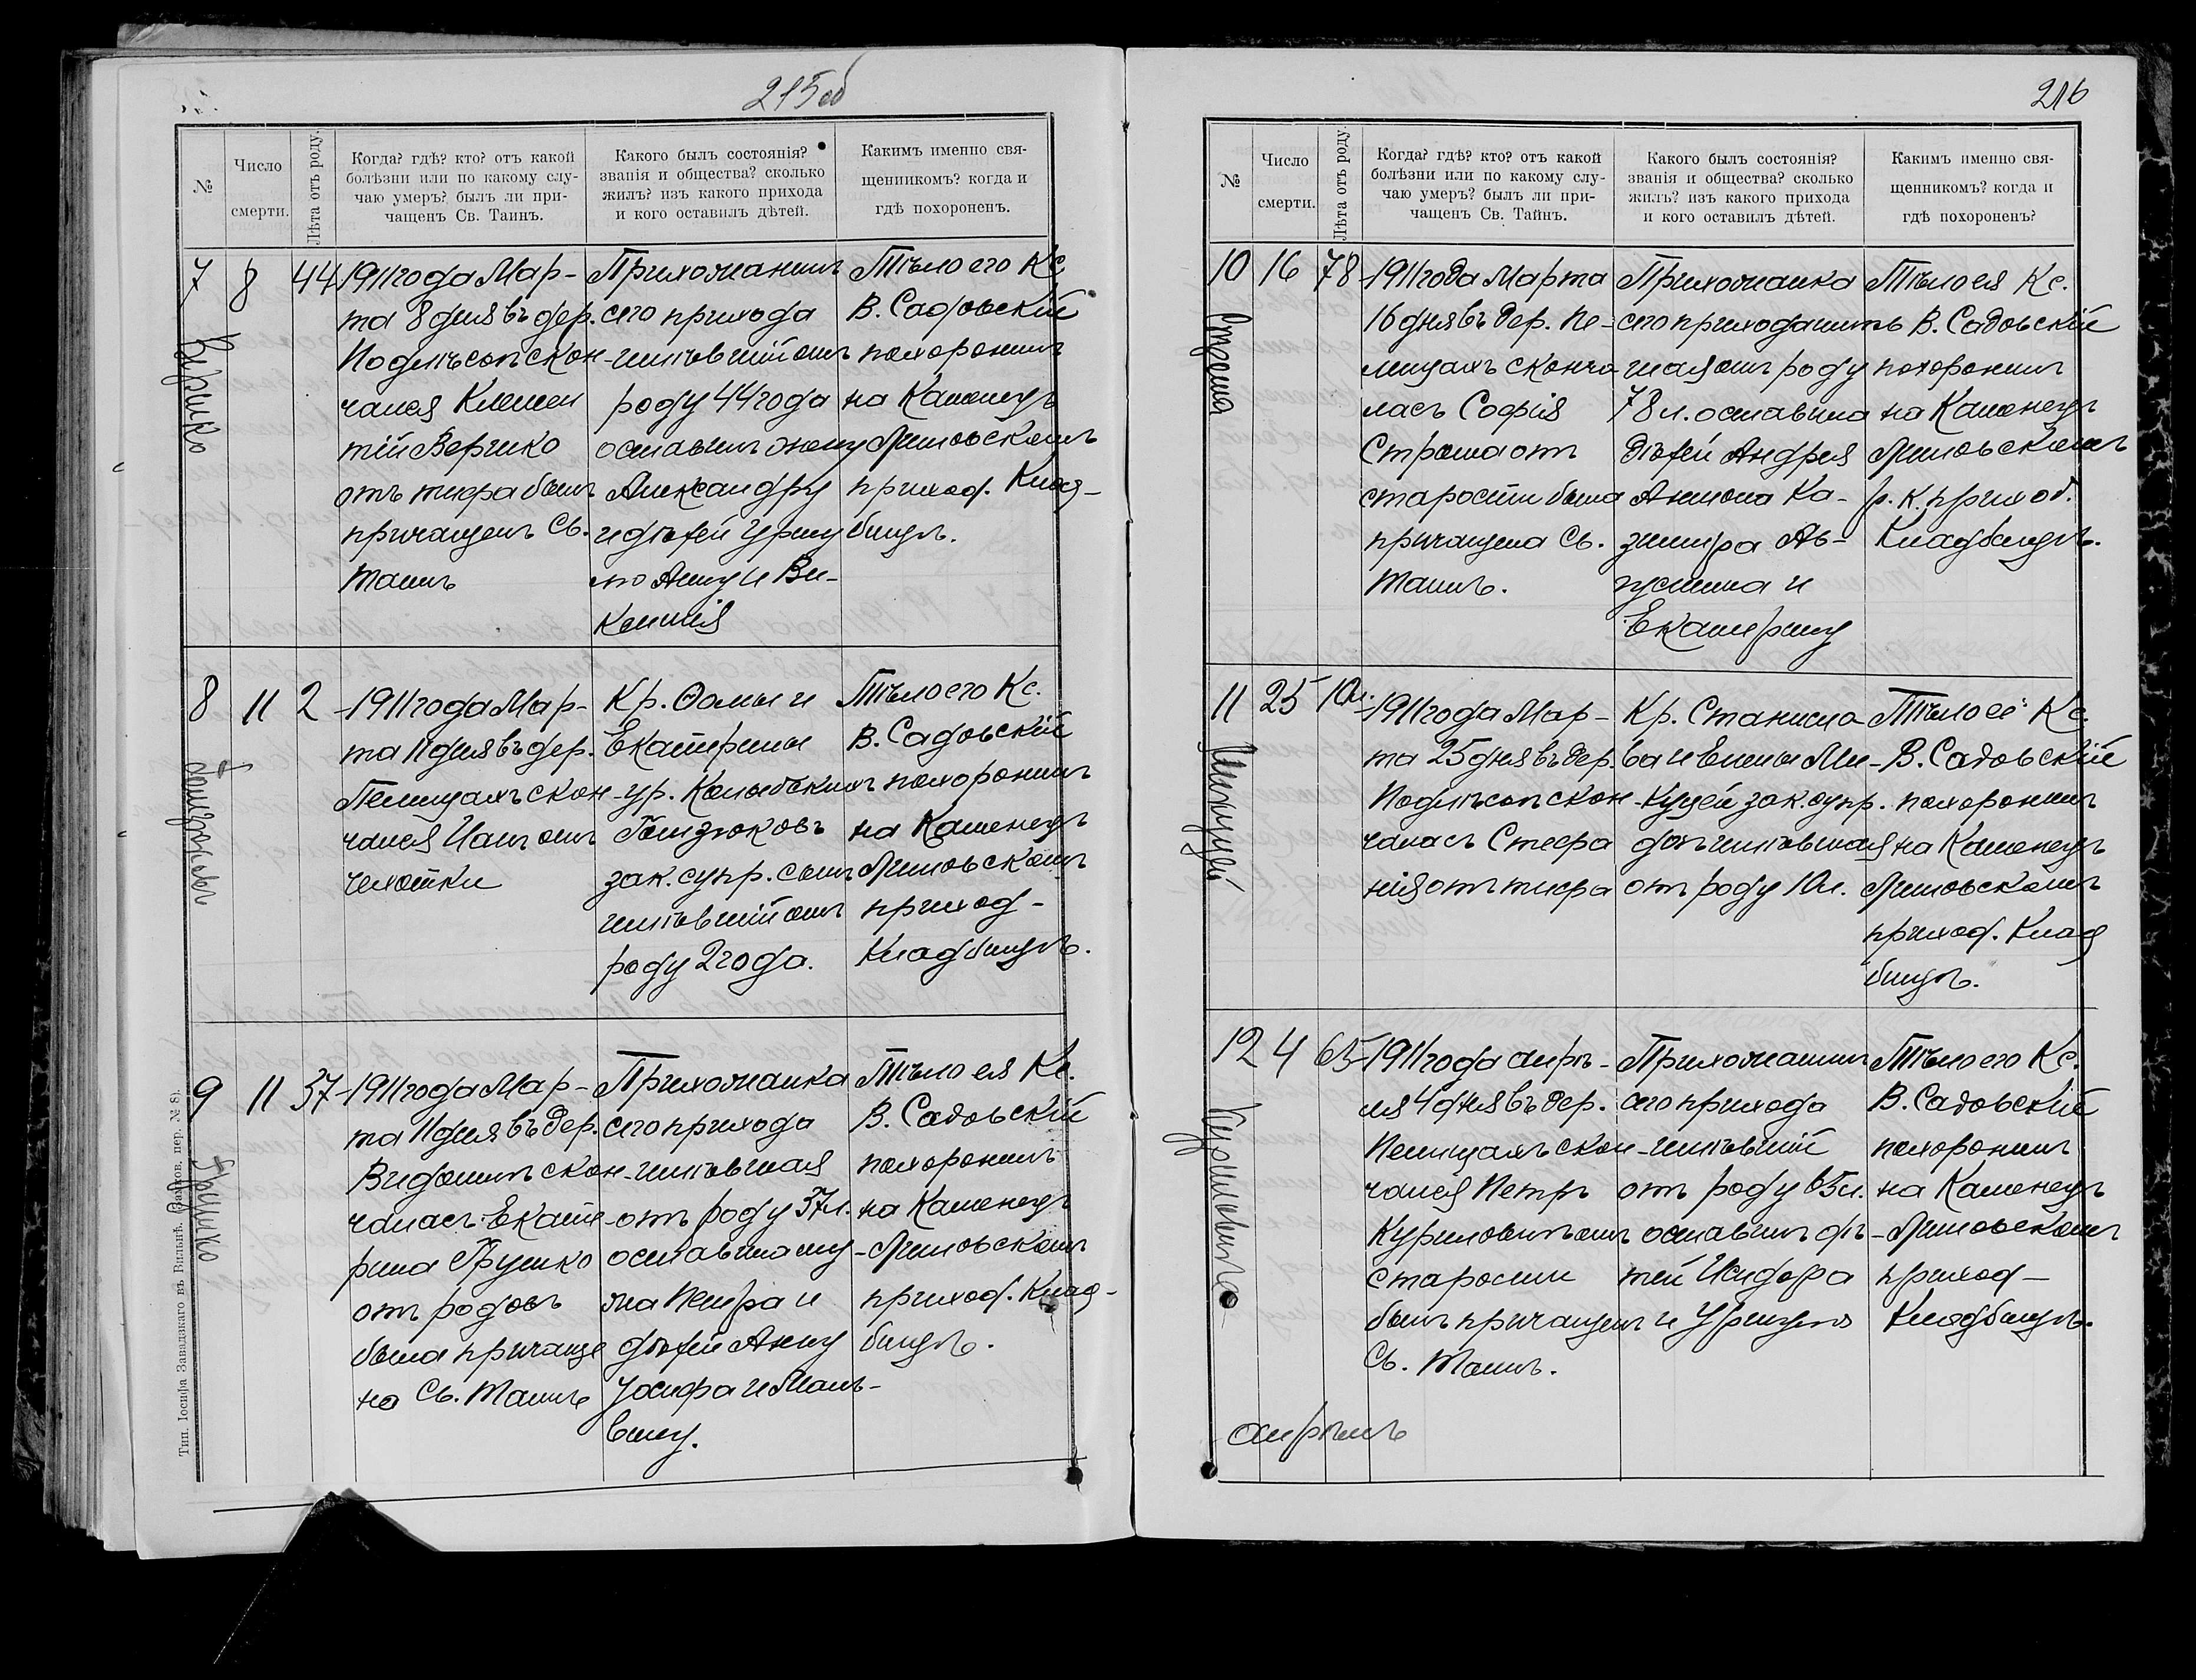 215об
№
Число
смерти.
Лѣта отъ роду.
Когда? гдѣ? кто? отъ какой
болѣзни или по какому слу-
чаю умеръ? былъ ли при-
чащенъ Св. Таинъ.
Какого былъ состоянія?
званія и общества? сколько
жилъ? изъ какого прихода
и кого оставилъ дѣтей.
Какимъ именно свя-
щенникомъ? когда и
гдѣ похороненъ.
7
8
44
Верчко
1911 года Мар-
та 8 дня въ дер.
Подлѣсоп скон-
чался Клемен
тій Верчко
отъ тифа былъ
причащенъ Св.
Таинъ
Прихожанинъ
сего прихода
жившій отъ
роду 44 года
оставилъ жену
Александру
и дѣтей Уршу
лю Анну и Ви-
кентія
Тѣло его Кс.
В. Садовскій
похоронилъ
на Каменец
Литовскомъ
приход. Клад-
бищѣ.
8
11
2
1911 года Мар-
та 11 дня въ дер.
Пелищахъ скон-
чался Иванъ отъ
чехотки
Кр. Ѳомы и
Екатерины
ур. Колыбскихъ
зак. супр. сынъ
жившій отъ
роду 2 года.
Тѣло его Кс.
В. Садовскій
похоронилъ
на Каменец
Литовскомъ
приход-
Кладбищѣ.
9
11
37
Грушко
1911 года Мар-
та 11 дня въ дер.
Видомлѣ скон-
чалась Екате-
рина Грушко
отъ родовъ
была причаще
на Св. Таинъ
Прихожанка
сего прихода
жившая
отъ роду 37 л.
оставила му-
жа Петра и
дѣтей Анну
Іосифа и Маль-
вину.
Тѣло ея Кс.
В. Садовскій
похоронилъ
на Каменец
Литовскомъ
приход. Клад-
бищѣ.
Тип. Іосифа Завадзкаго въ Вильнѣ. (Замков. пер. № 8).
216
№
Число
смерти.
Лѣта отъ роду.
Когда? гдѣ? кто? отъ какой
болѣзни или по какому слу-
чаю умеръ? былъ ли при-
чащенъ Св. Тайнъ.
Какого былъ состоянія?
званія и общества? сколько
жилъ? изъ какого прихода
и кого оставилъ дѣтей.
Какимъ именно свя-
щенникомъ? когда и
гдѣ похороненъ?
10
16
78
Строма
1911 года Марта
16 дня въ дер. Пе-
лищахъ сконча
лась Софія
Строма отъ
старости была
причащена Св.
Таинъ.
Прихожанка
сего прихода жив
шая отъ роду
78 л. оставила
дѣтей Андрея
Антона Ка-
зимира Ав-
густина и
Екатерину
Тѣло ея Кс.
В. Садовскій
похоронилъ
на Каменец
Литовскомъ
р. к. приход.
Кладбищѣ.
11
25
10 л.
Микуцей
1911 года Мар-
та 25 дня въ дер.
Подлѣсоп скон-
чалась Стефа
нія отъ тифа
Кр. Станисла
ва и Елены Ми-
куцей зак. супр.
дочь жившая
отъ роду 10 л.
Тѣло ее Кс.
В. Садовскій
похоронилъ
на Каменец
Литовскомъ
приход. Клад
бищѣ.
12
4
65
Куриловичъ
1911 года апрѣ-
ля 4 дня въ дер.
Пелищахъ скон-
чался Петръ
Куриловичъ отъ
старости
былъ причащенъ
Св. Таинъ.
Прихожанинъ
сего прихода
жившій
отъ роду 65 л.
оставилъ дѣ-
тей Исидора
и Урщулю
Тѣло его Кс.
В. Садовскій
похоронилъ
на Каменец
Литовскомъ
приход-
Кладбищѣ.
апрѣль